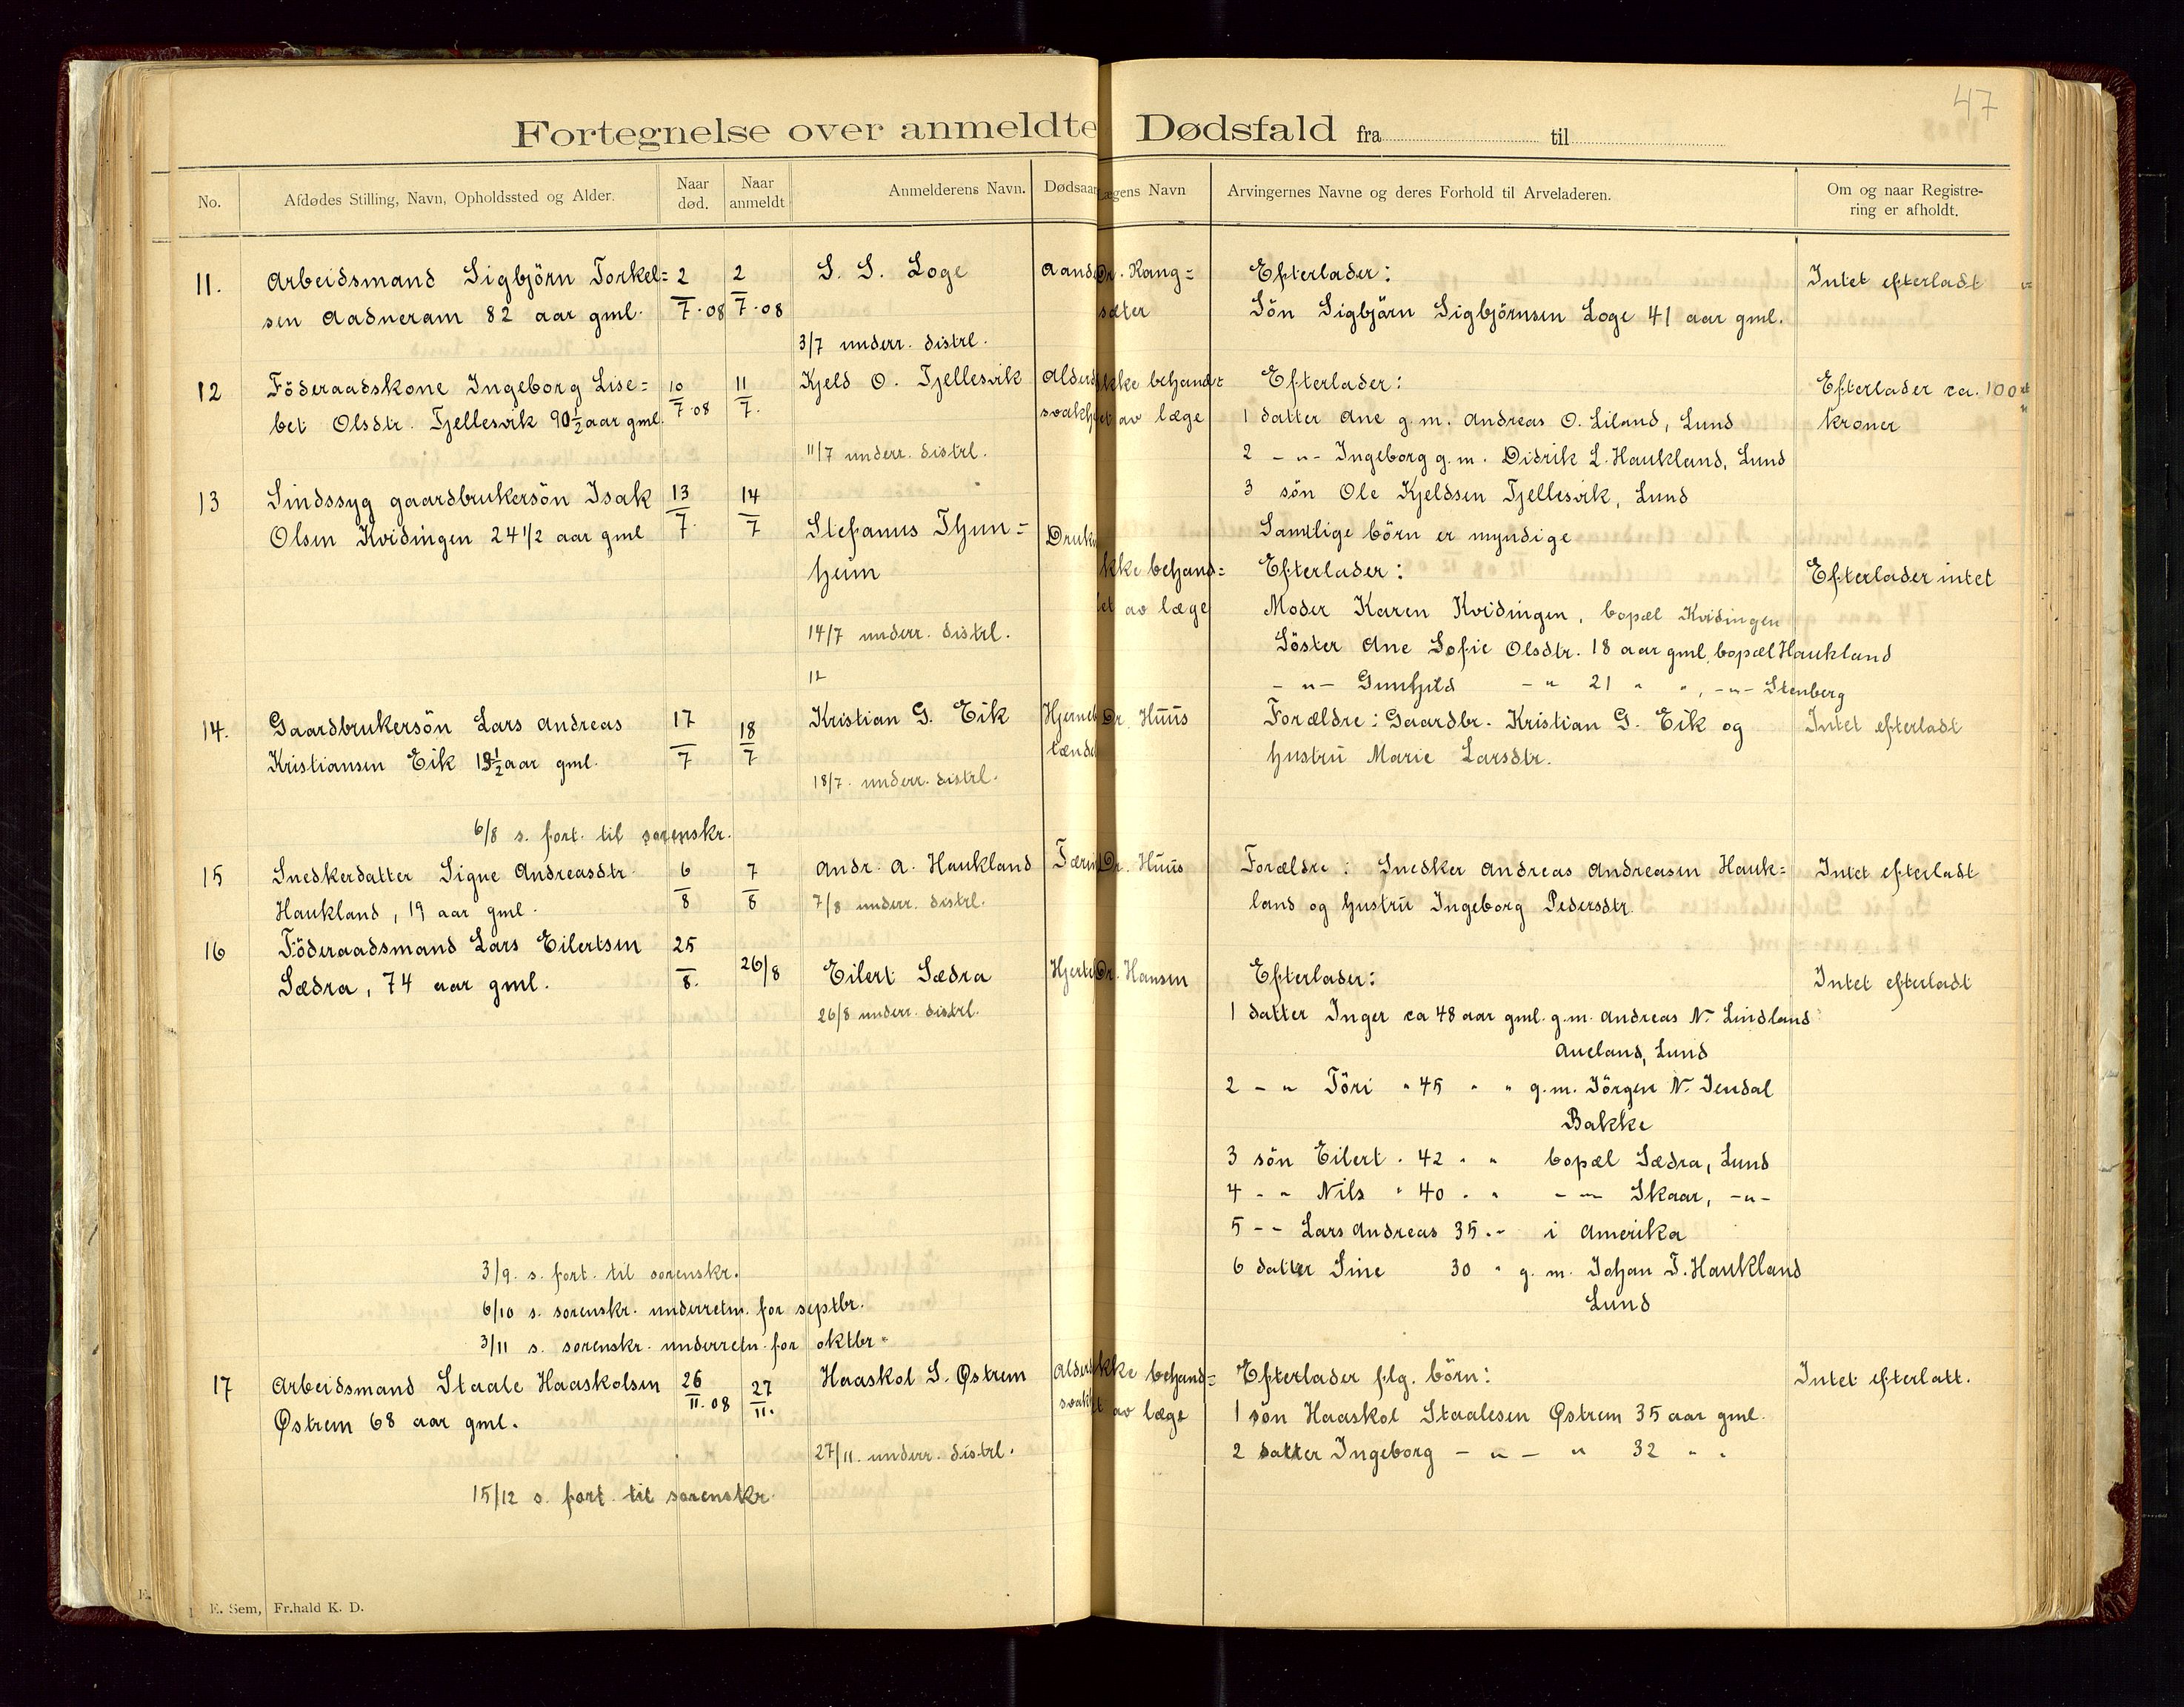 47
Fortegnelse over anmeldte Dødsfald fra til
No.
Afdødes Stilling, Navn, Opholdssted og Alder.
Naar død.
Naar anmeldt
Anmelderens Navn.
Dødsaar
Lægens Navn
Arvingernes Navne og deres Forhold til Arveladeren.
Om og naar Registre-
ring er afholdt.
11.
Arbeidsmand Sigbjörn Torkel=
sen Aadneram 82 aar gml.
2/7.08
2/7.08
S. S. Loge
3/7 underr. distrl.
Aand
Dr. Kang=
sæter
Efterlader:
Sön Sigbjörn Sigbjörnsen Loge 41 aar gml.
Intet efterladt
12
Föderaadskone Ingeborg Lise=
bet Olsdtr. Tjellesvik 90½ aar gml.
10/7.08
11/7.
Kjeld O. Tjellesvik
11/7 underr. distrl.
Alderd
svakh
kke behand=
et av læge
Efterlader:
1 datter Ane g.m. Andreas O. Liland, Lund
2 - " - Ingeborg g.m. Didrik L. Haukland, Lund
3 sön Ole Kjeldsen Tjellesvik, Lund
Samtlige börn er myndige
Efterlader ca. 100
kroner
13
Sindssyg gaardbrukersön Isak
Olsen Kvidingen 24 1/2 aar gml
13/7.
14/7
Stefanus Thjun=
heim
14/7 underr. distrl.
12
Drukn
kke behand=
et av læge
Efterlader:
Moder Karen Kvidingen, bopæl Kvidingen
Söster Ane Sofie Olsdtr. 18 aar gml, bopæl Haukland
- " - Gunhild - " 21 " ", - " - Stenberg
Efterlader intet
14.
Gaardbrukersön Lars Andreas
Kristiansen Eik 19½ aar gml.
17/7
18/7
Kristian G. Eik
18/7. underr. distrl.
Hjerneb
lænde
Dr. Huus
Forældre: Gaardbr. Kristian G. Eik og
hustru Marie Larsdtr.
Intet efterladt
6/8 s. fort. til sorenskr.
15
Snedkerdatter Signe Andreasdtr.
Haukland, 19 aar gml.
6/8
7/8
Andr. A. Haukland
7/8 underr. distrl.
Tærin
Dr. Huus
Forældre: Snedker Andreas Andreasen Hauk=
land og hustru Ingeborg Pedersdtr.
Intet efterladt
16
Föderaadsmand Lars Eilertsen
Sædra, 74 aar gml.
25/8.
26/8
Eilert Sædra
26/8 underr. distrl.
Hjertef
Dr. Hansen
Efterlader:
1 datter Inger ca 48 aar gml. g.m. Andreas N. Lindland
Aueland, Lund
2 - " Töri " 45 " " g.m. Jörgen N. Jendal
Bakke
3 sön Eilert " 42 " " bopæl Sædra, Lund
4 - " Nils " 40 " " - " - Skaar, - " -
5 - - Lars Andreas 35 " - i Amerika
6 datter Sine 30 " g. m. Johan T. Haukland
Lund
Intet efterladt
3/9. s. fort. til sorenskr.
6/10 s. sorenskr. underretn. for septbr.
3/11 s. sorenskr. underretn. for oktbr.
17
Arbeidsmand Staale Haaskolsen
Østrem 68 aar gml.
26/11.08
27/11.
Haaskol S. Østrem
27/11. underr. distrl.
Alderd
svakh
kke behand=
t av læge
Efterlader flg. börn:
1 sön Haaskol Staalesen Østrem 35 aar gml.
2 datter Ingeborg - " - " 32 " "
Intet efterlatt.
15/12 s. fort. til sorenskr.
E. Sem, Fr.hald K. D.